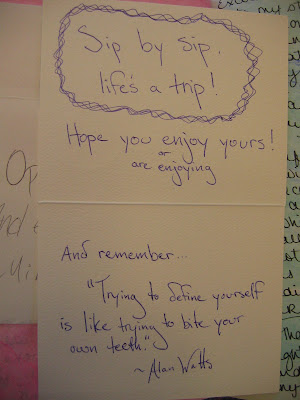 Sip by sip,
life's a trip!
Hope you enjoy yours!
or
are enjoying
And remember...
"Trying to define yourself
is like trying to bite your
own teeth."
~Alan Watts